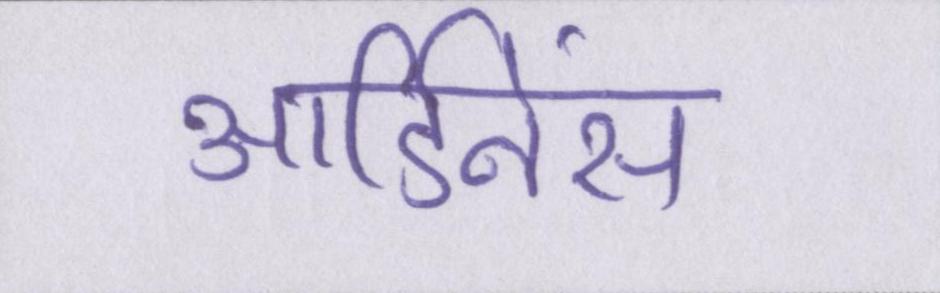 आर्डिनेंस